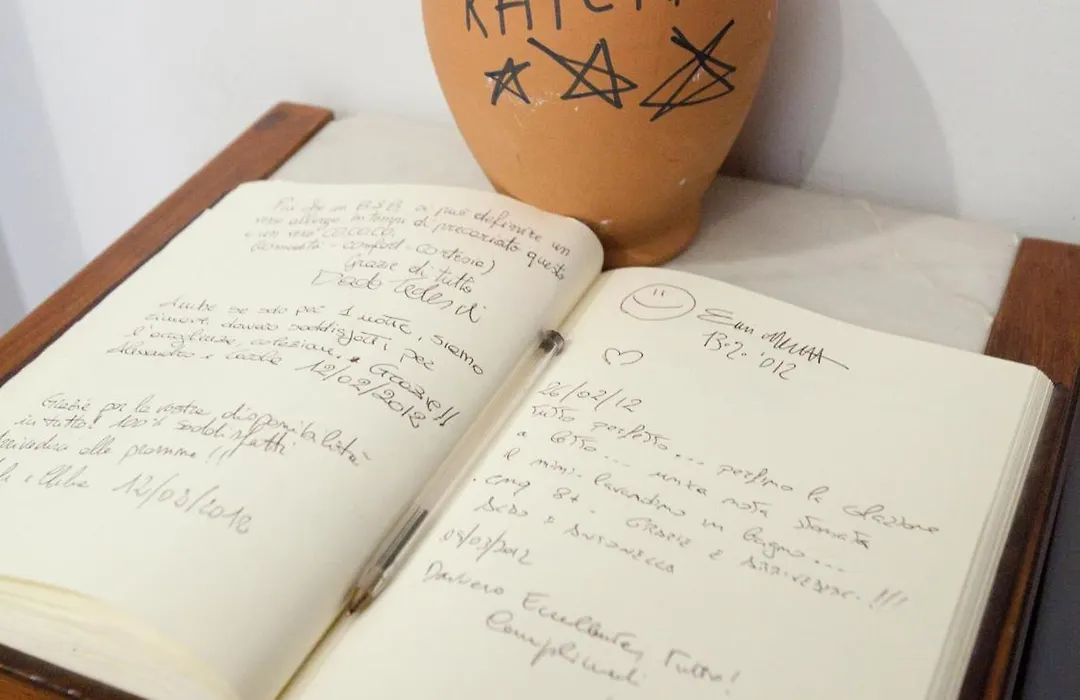 KATE
Più che un B&B si può definire un
vero albergo. In tempi di precariato questo
è un vero CO.CO.CO.
(comodità - comfort - cortesia)
Grazie di tutto
Dado Tedeschi
Anche se solo per 1 notte, siamo
rimasti davvero soddisfatti per
l'accoglienza, colazione. Grazie!!
Alessandro e 12/02/2012
Grazie per la vostra disponibilità
in tutto! 100% soddisfatti
Arrivederci alla prossima!!!
e 12/03/2012
13.2.'012
26/02/12
Tutto perfetto... perfino la colazione
a letto... unica nota stonata
il mini lavandino in bagno...
cmq 8+. GRAZIE E ARRIVEDERCI!!!
ALDO E ANTONELLA
04/03/2012
Davvero Eccellente, Tutto!
Complimenti